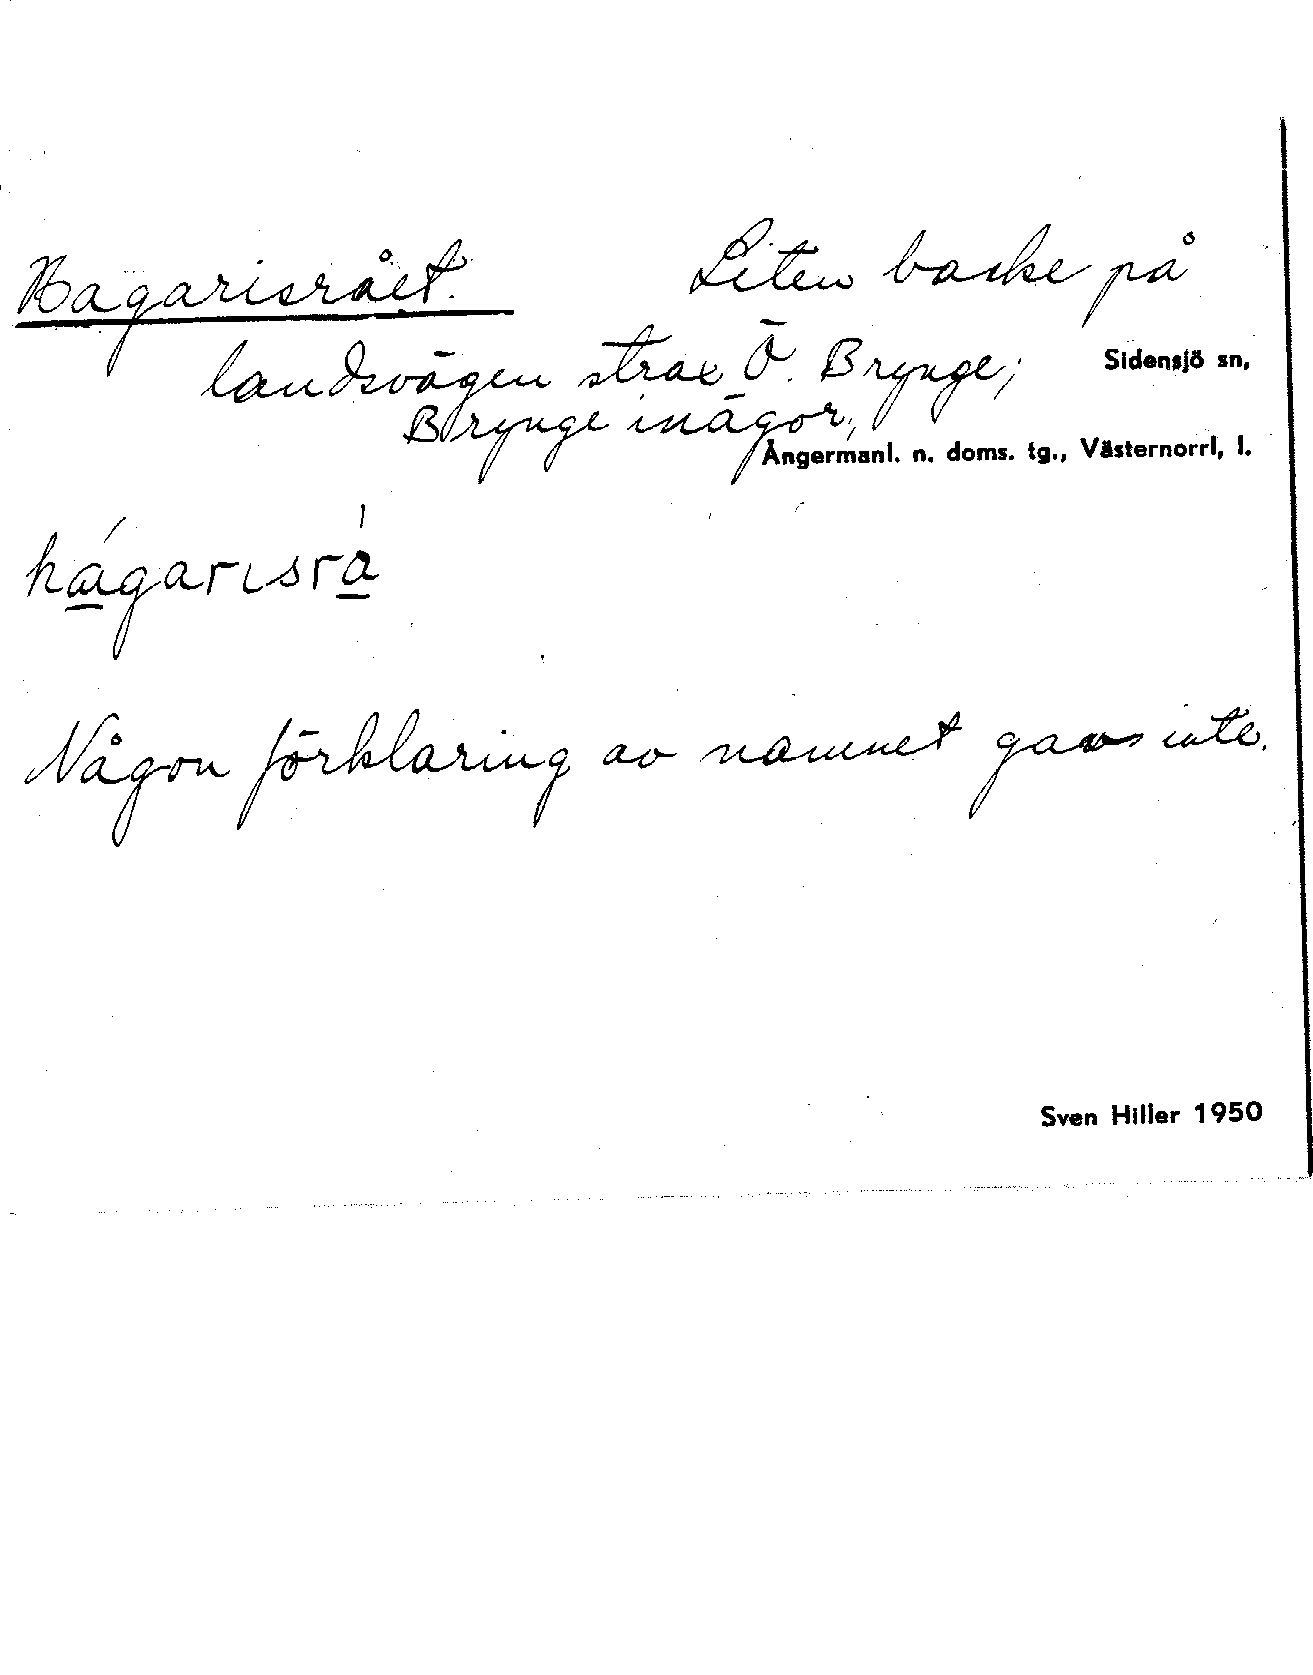 Hagarisrået. Liten backe på
landsvägen strax Ö. Brynge; Sidensjö sn,
Brynge inägor,
Ångermanl. n. doms. tg., Västernorrl, l.
hagarisrå
Någon förklaring av namnet gavs inte.
Sven Hiller 1950